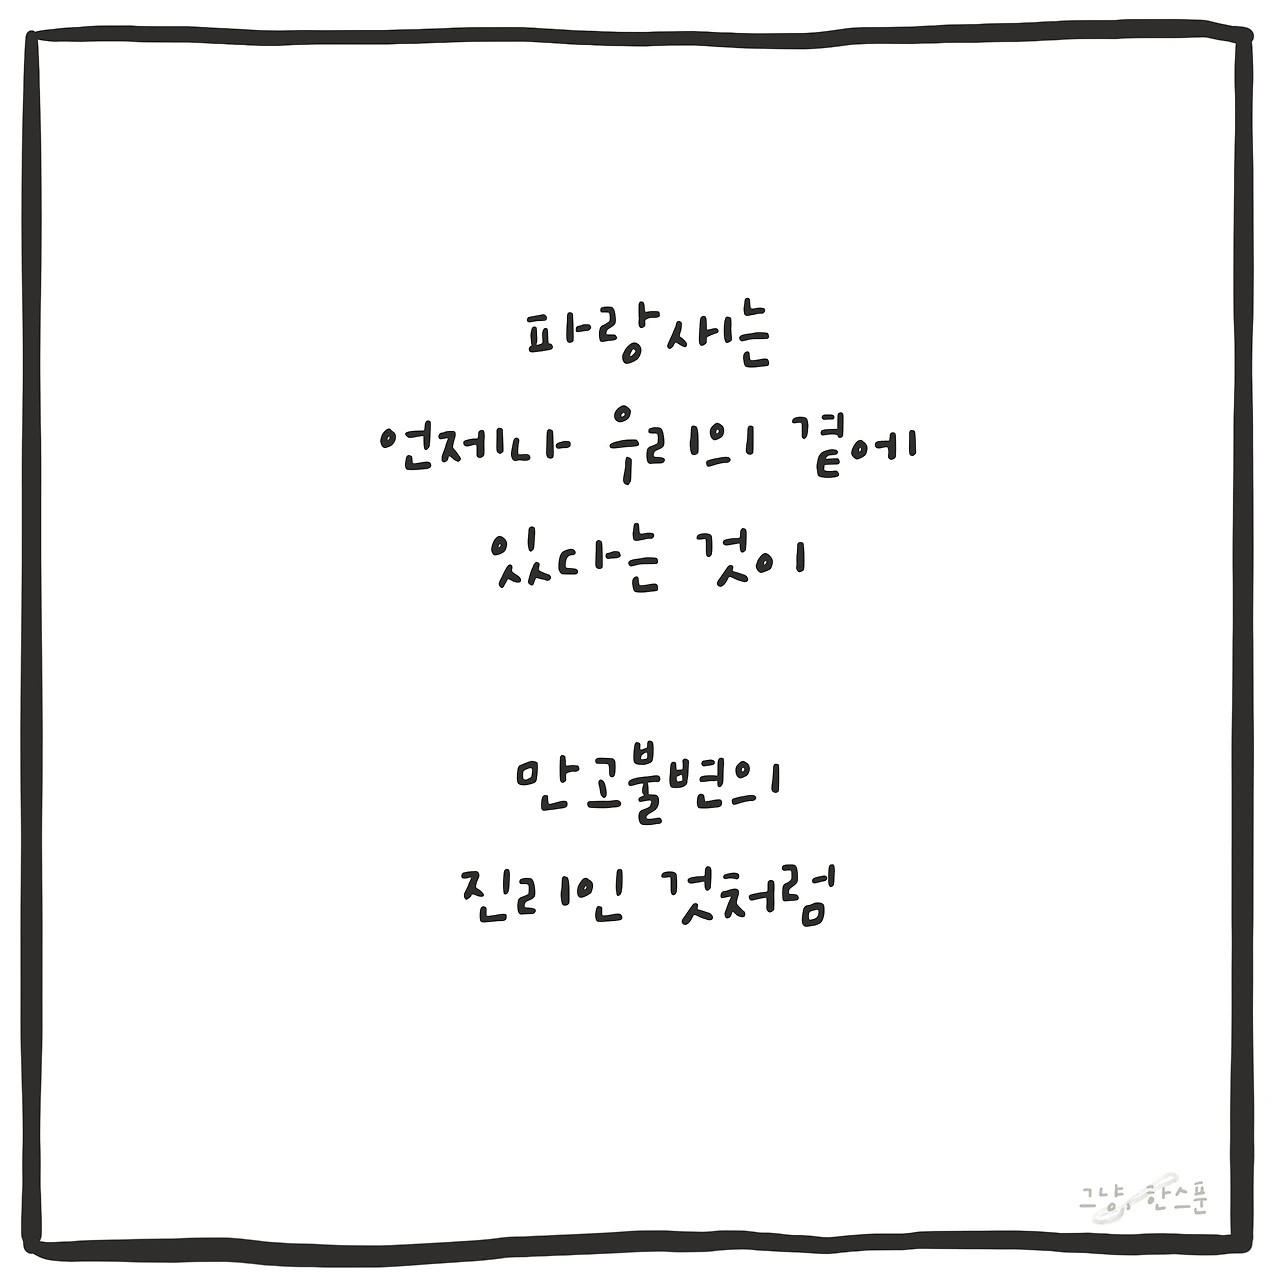 파랑새는
언제나 우리의 곁에
있다는 것이
만고불변의
진리인 것처럼
그냥, 한스푼